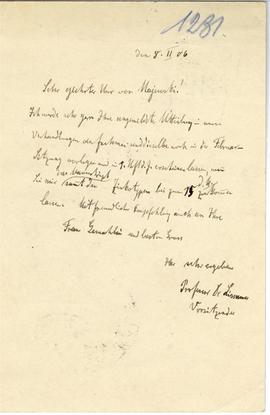 1281.
den 8. II 06
Sehr geehrter Herr von Majewski!
Ich werde sehr gern Ihre angemeldete Mitteilung in unsern
Verhandlungen aufnehmen und dieselbe noch in der Februar
Sitzung vorlegen und in 1. Heft erscheinen lassen, wenn
Sie mir das samt den Zinkotypen bis zum 15 d. M. zukommen
lassen. Mit freundlicher Empfehlung auch an Ihre
Frau Gemahlin und bestem Gruss
Ihr sehr ergebener
Professor Dr Lissauer
Vorsitzender